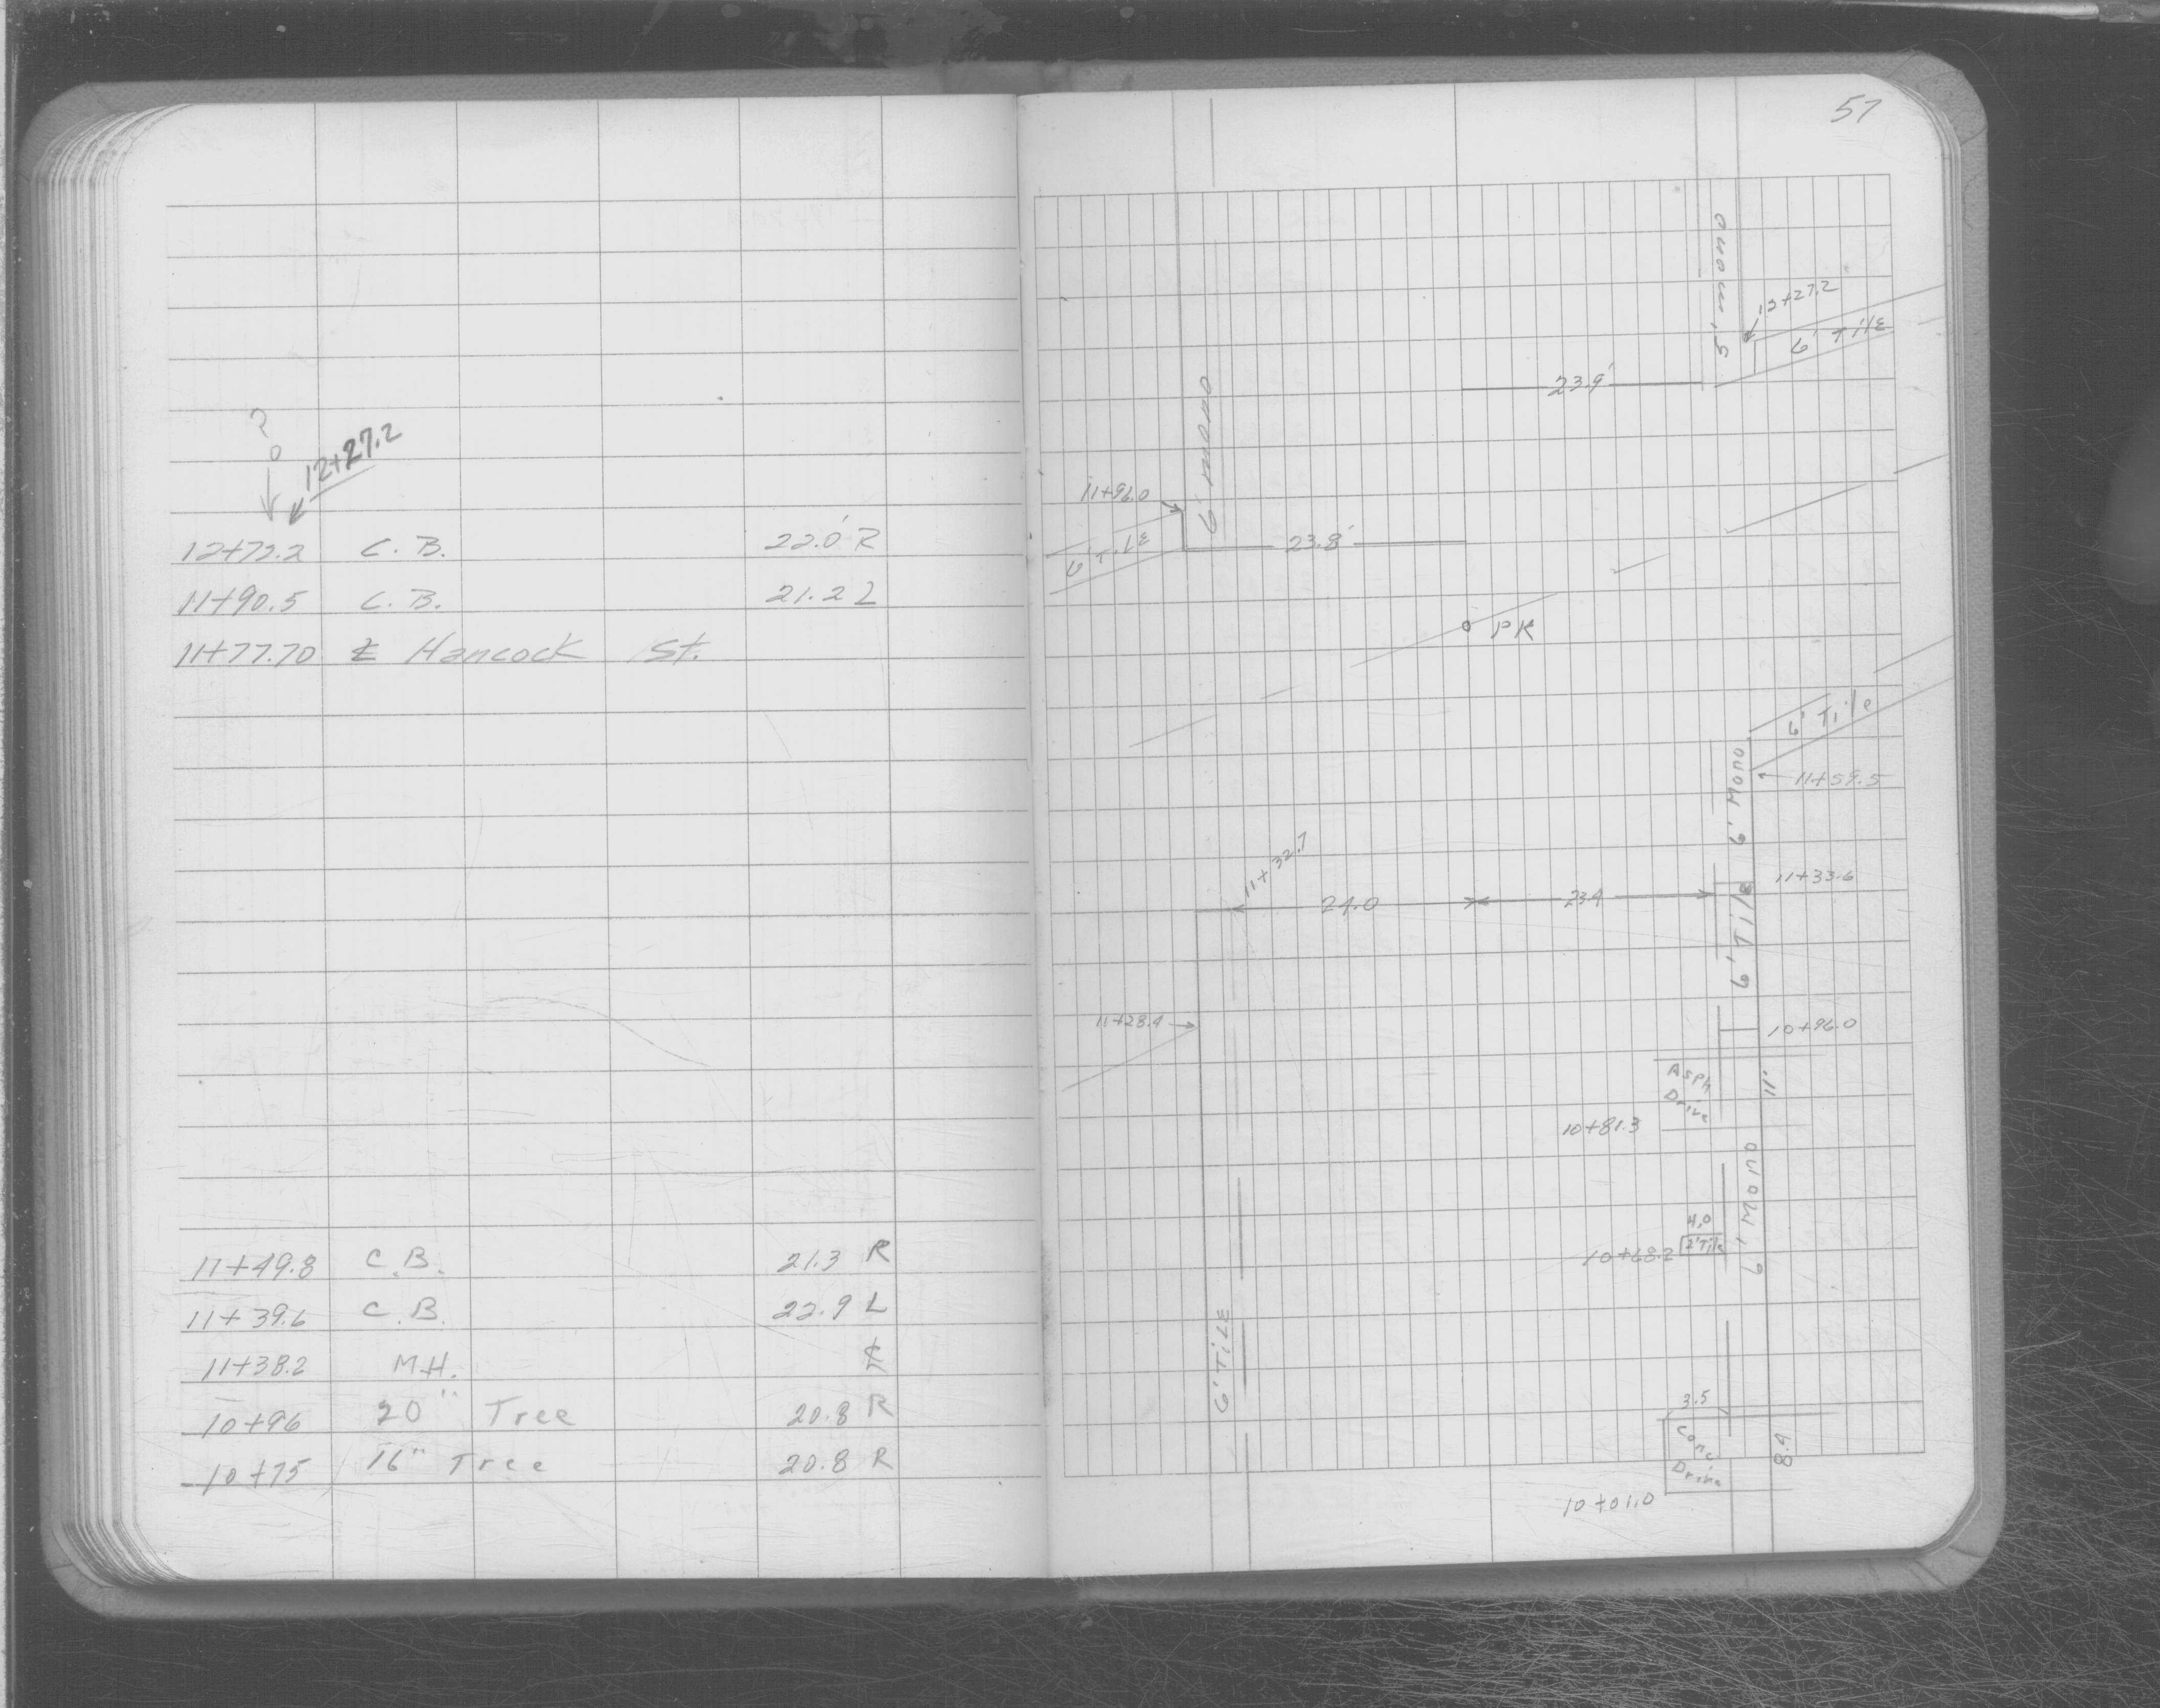 57
?
12+27.2
12+72.2 C.B. 22.0' R
11+90.5 C.B. 21.2 L
11+77.70 ℄ Hancock St.
11+49.8 C.B. 21.3 R
11+39.6 C.B. 22.9 L
11+38.2 M.H. ℄
10+96 20" Tree 20.8 R
10+75 16" Tree 20.8 R
5' mono
12+27.2
6' Tile
23.9'
6' mono
11+96.0
6' Tile
23.8'
PK
6' Tile
6' Mono
11+59.5
11+32.7
24.0
23.4
11+33.6
6' Tile
11+28.4
10+96.0
Asph
Drive
11'
10+81.3
6' Mono
4.0
2' Tile
10+68.2
6' TILE
3.5
Conc
Drive
8.4
10+01.0